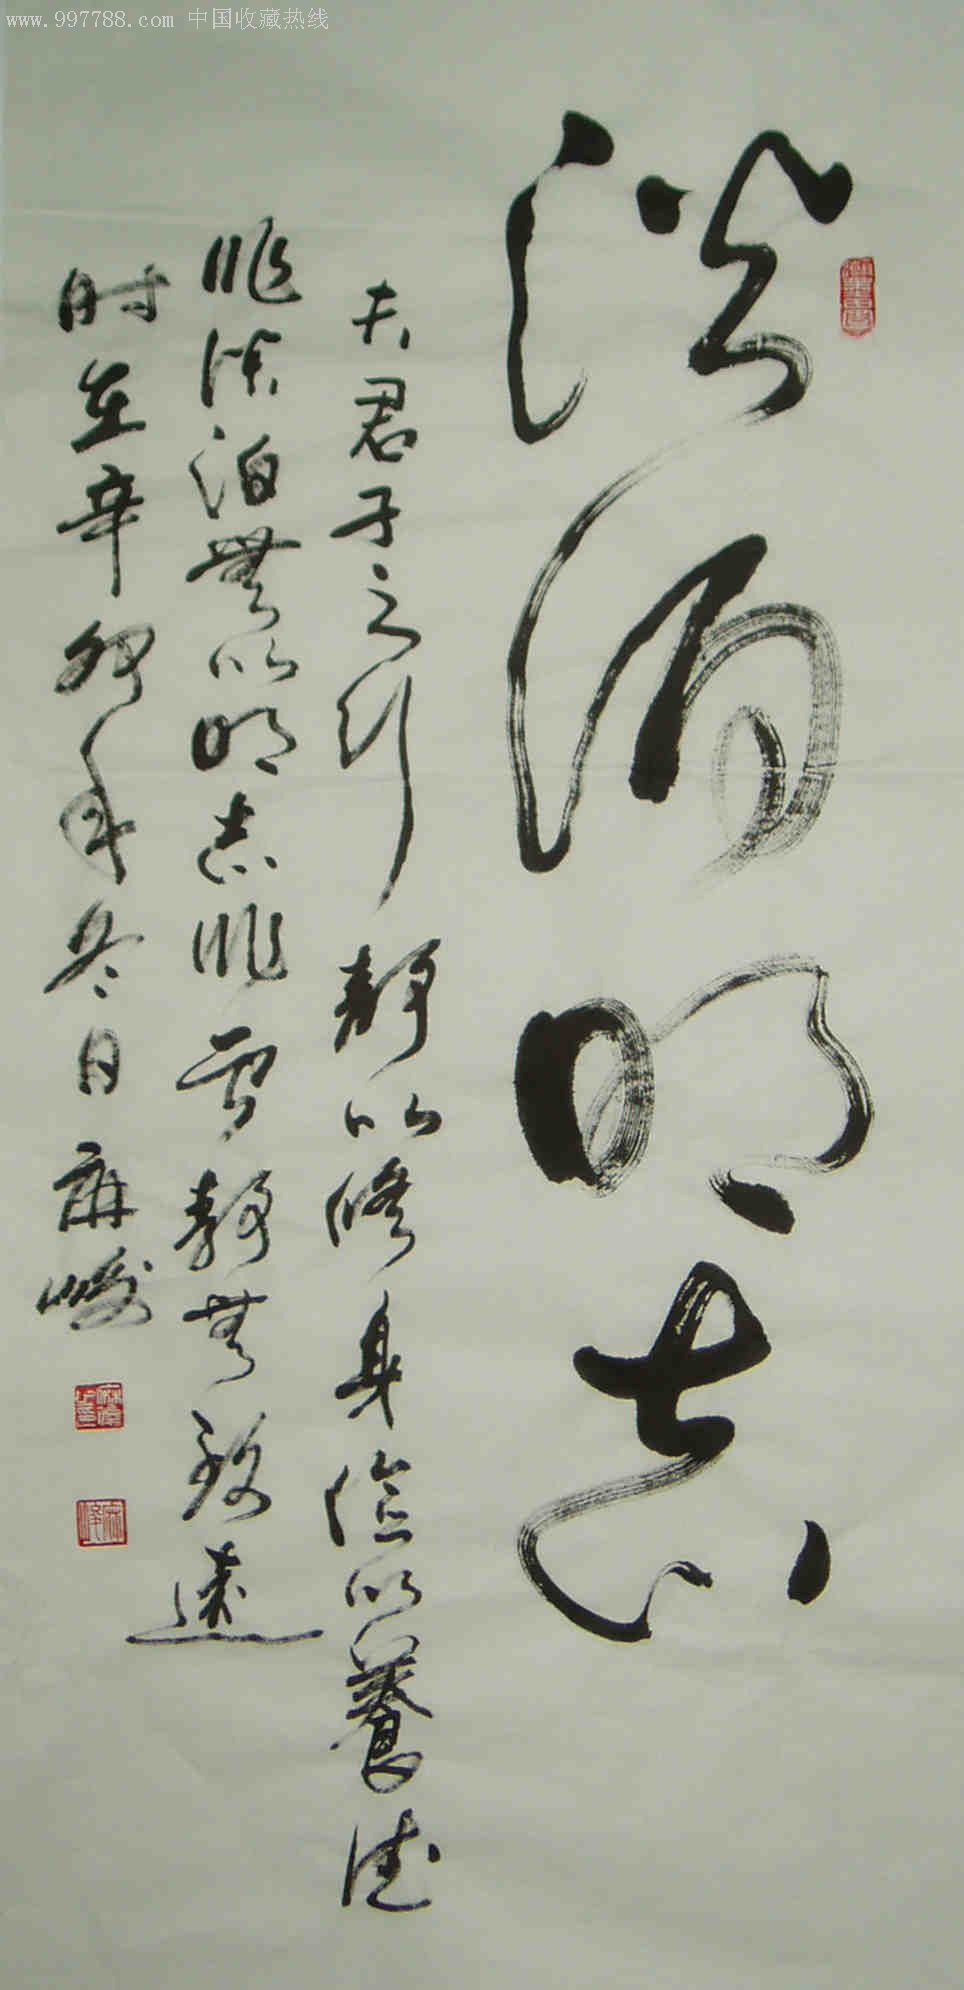 www.997788.com 中国收藏热线
淡泊明志
夫君子之行静以修身俭以養德
非淡泊無以明志非宁静無致遠
时在辛卯年冬日麻峻